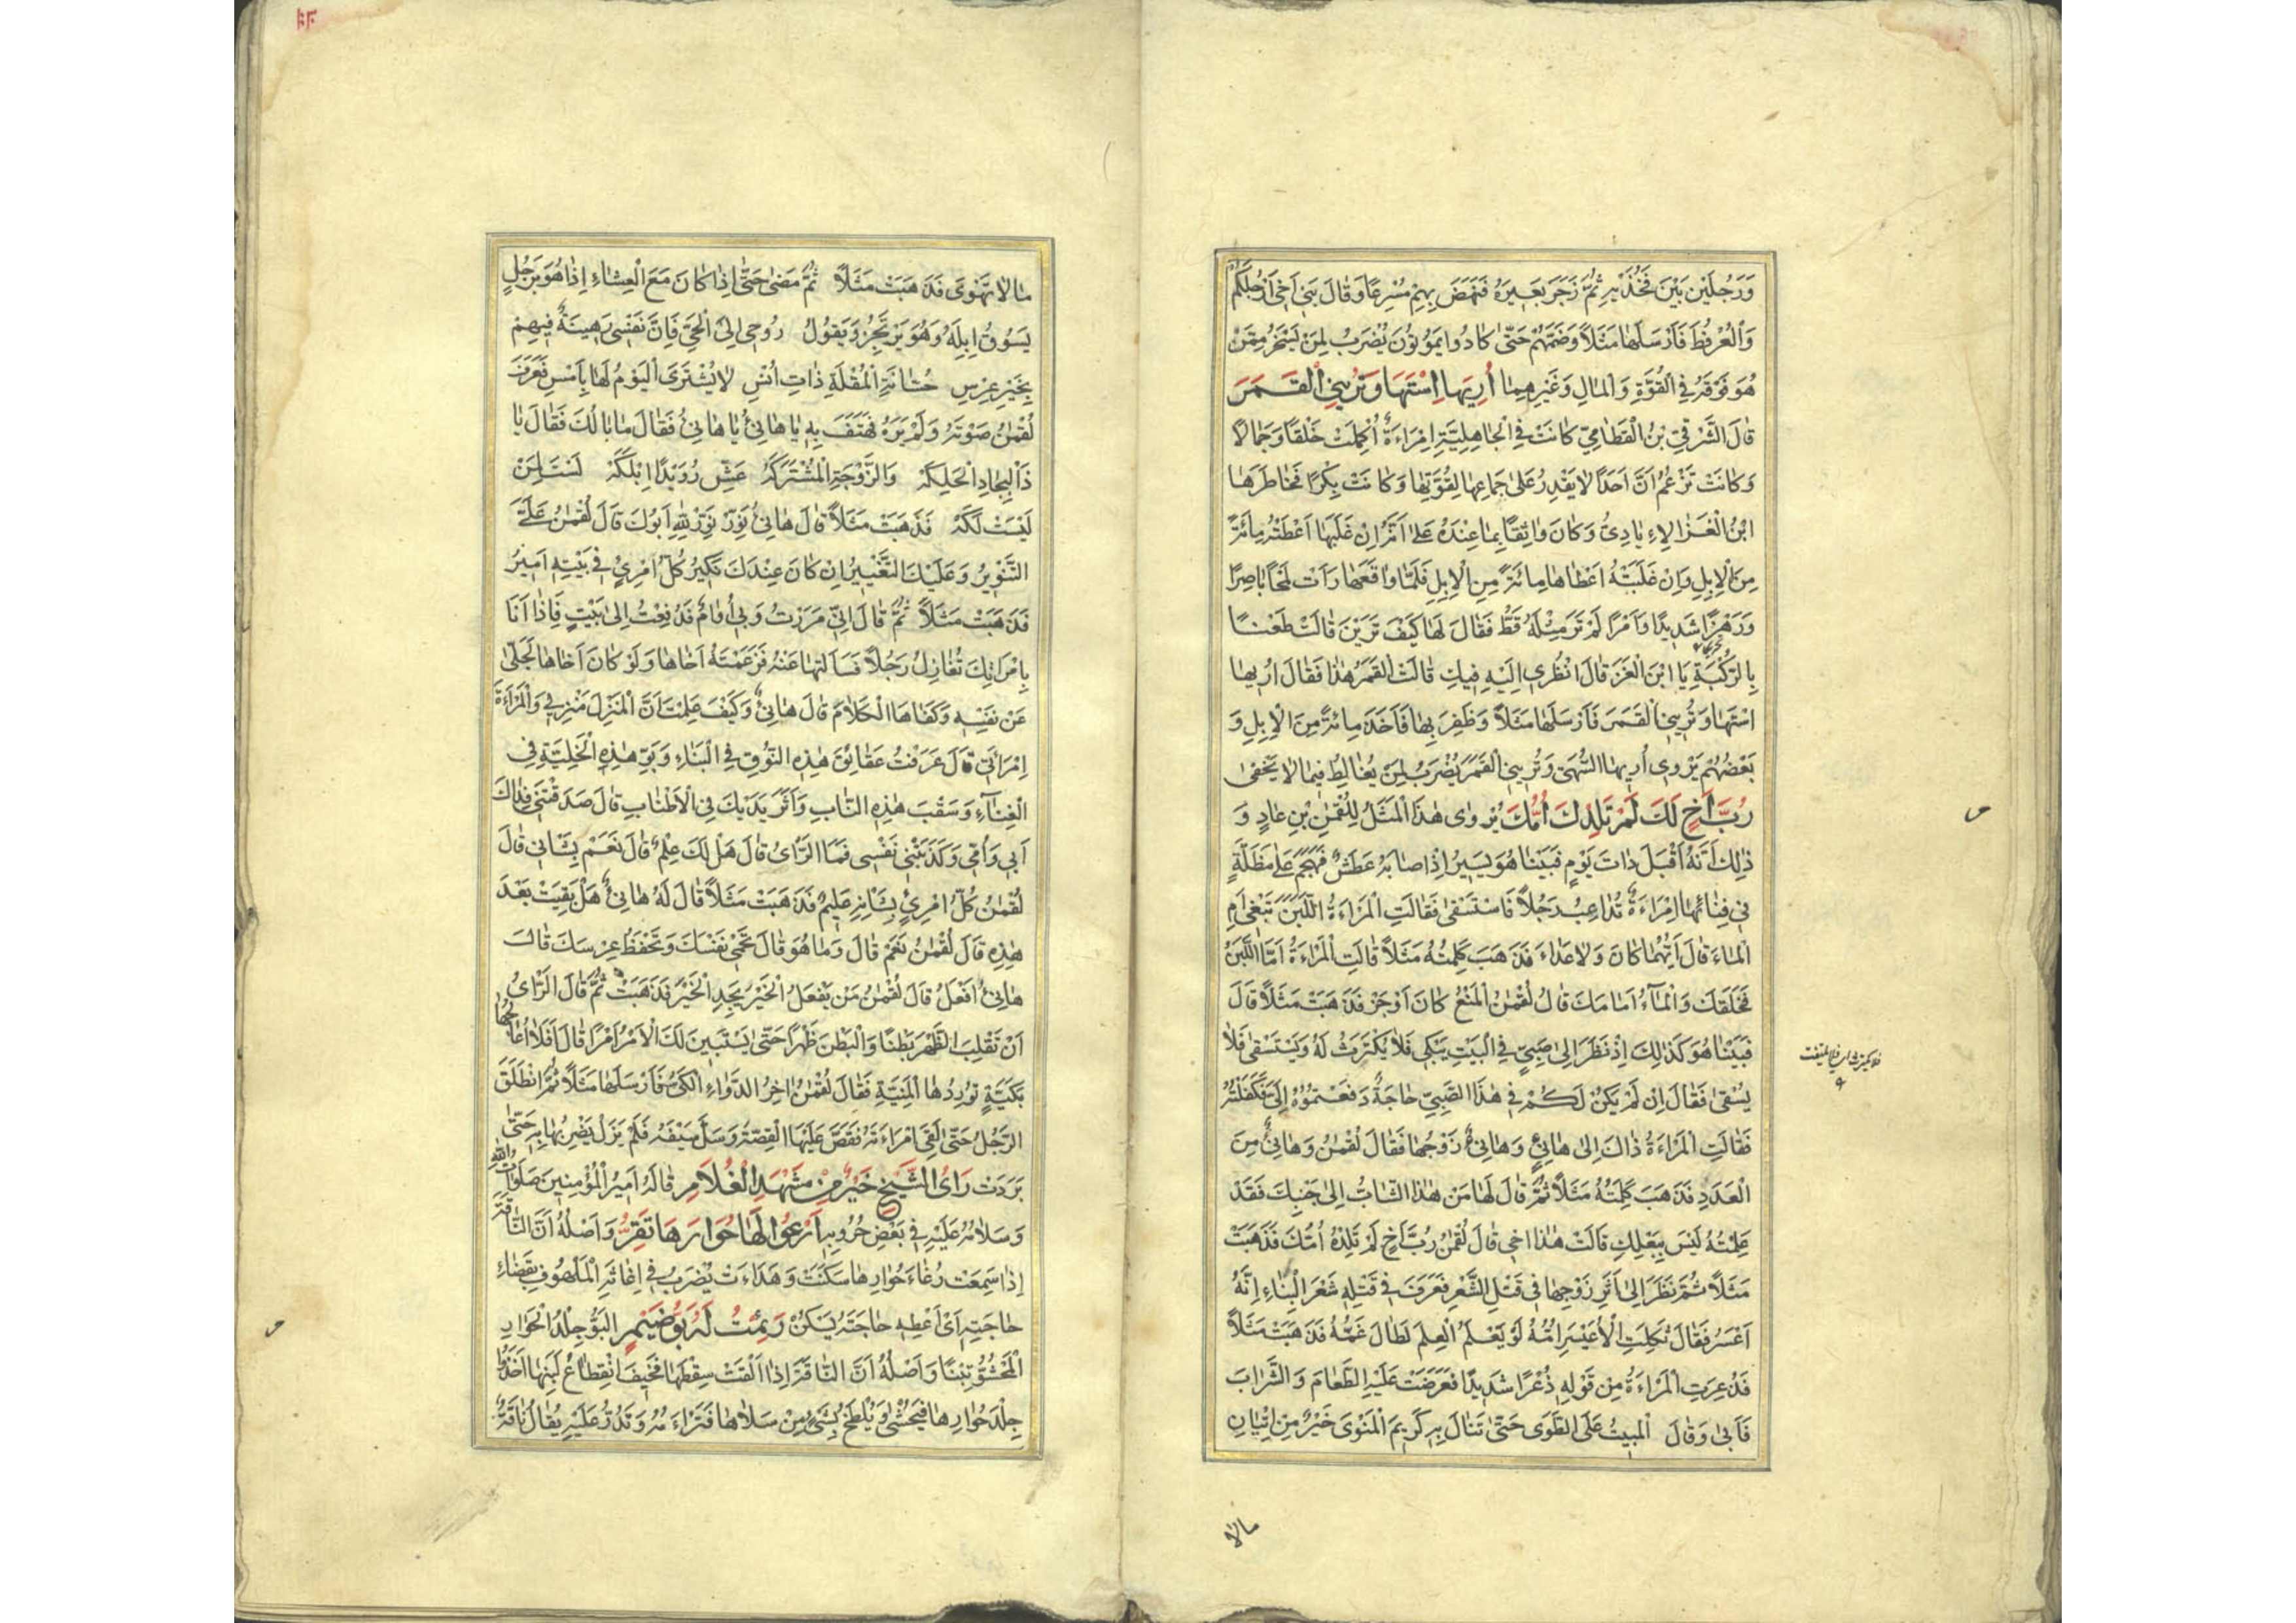 وَرَجُلَيْنِ بَيْنَ فَخُذَيْهِ ثُمَّ زَجَرَ بَعِيرَهُ فَنَهَضَ بِهِمْ مُسْرِعًا وَقَالَ بَنِي أَخِي أَرْجُلَكُمْ
وَالْعُرْفُطَ فَأَرْسَلَهَا مَثَلًا وَضَمَّهُمْ حَتَّى كَادُوا يَمُوتُونَ يُضْرَبُ لِمَنْ يَسْخَرُ مِمَّنْ
هُوَ فَوْقَهُ فِي الْقُوَّةِ وَالْمَالِ وَغَيْرِهِمَا أُرِيهَا اسْتَهَا وَتُرِينِي الْقَمَرَ
قَالَ الشَّرْقِيّ بْنُ الْقَطَامِيّ كَانَتْ فِي الْجَاهِلِيَّةِ امْرَاءَةٌ أُكْمِلَتْ خَلْقًا وَجَمَالًا
وَكَانَتْ تَزْعُمُ أَنَّ أَحَدًا لَا يَقْدِرُ عَلَى جِمَاعِهَا لِقُوَّتِهَا وَكَانَتْ بِكْرًا فَخَاطَرَهَا
ابْنُ الْغَزِ الْإِيَادِيُّ وَكَانَ وَاثِقًا بِمَا عِنْدَهُ عَلَى أَنَّهُ إِنْ غَلَبَهَا أَعْطَتْهُ مِائَةً
مِنَ الْإِبِلِ وَإِنْ غَلَبَتْهُ أَعْطَاهَا مِائَةً مِنَ الْإِبِلِ فَلَمَّا وَاقَعَهَا رَأَتْ لَمْحًا بَاصِرًا
وَرَهْزًا شَدِيدًا وَأَمْرًا لَمْ تَرَ مِثْلَهُ قَطُّ فَقَالَ لَهَا كَيْفَ تَرَيْنَ قَالَتْ طَعْنًا
بِالرُّكْبَةِ يَا ابْنَ الْغَزِ قَالَ انْظُرِي إِلَيْهِ فِيكِ قَالَتْ الْقَمَرُ هٰذَا فَقَالَ أُرِيهَا
اسْتَهَا وَتُرِينِي الْقَمَرَ فَأَرْسَلَهَا مَثَلًا وَظَفِرَ بِهَا فَأَخَذَ مِائَةً مِنَ الْإِبِلِ وَ
بَعْضُهُمْ يَرْوِي أُرِيهَا السُّهَى وَتُرِينِي الْقَمَرَ يُضْرَبُ لِمَنْ يُغَالِطُ فِيمَا لَا يَخْفَى
رُبَّ أَخٍ لَكَ لَمْ تَلِدْكَ أُمُّكَ يُرْوَى هٰذَا الْمَثَلُ لِلُقْمٰنَ بْنِ عَادٍ وَ
ذٰلِكَ أَنَّهُ أَقْبَلَ ذَاتَ يَوْمٍ فَبَيْنَا هُوَ يَسِيرُ إِذْ أَصَابَهُ عَطَشٌ فَهَجَمَ عَلَى مَظَلَّةٍ
فِي فِنَائِهَا امْرَاءَةٌ تُدَاعِبُ رَجُلًا فَاسْتَسْقَى فَقَالَتِ الْمَرْاءَةُ اللَّبَنَ تَبْغِي أَمِ
الْمَاءَ قَالَ أَيُّهُمَا كَانَ وَلَا عَدَاءَ فَذَهَبَ كَلِمَتُهُ مَثَلًا قَالَتِ الْمَرْاءَةُ أَمَّا اللَّبَنُ
فَخَلَفَكَ وَالْمَاءُ أَمَامَكَ قَالَ لُقْمٰنُ الْمَنْعُ كَانَ أَوْجَزَ فَذَهَبَتْ مَثَلًا قَالَ
فَبَيْنَا هُوَ كَذٰلِكَ إِذْ نَظَرَ إِلَى صَبِيٍّ فِي الْبَيْتِ يَبْكِي فَلَا يُكْتَرَثُ لَهُ وَيَسْتَسْقِي فَلَا
يُسْقَى فَقَالَ إِنْ لَمْ يَكُنْ لَكُمْ فِي هٰذَا الصَّبِيِّ حَاجَةٌ دَفَعْتُمُوهُ إِلَيَّ فَكَفَلْتُهُ
فَقَالَتِ الْمَرْاءَةُ ذَاكَ إِلَى هَانِئٍ وَهَانِئٌ زَوْجُهَا فَقَالَ لُقْمٰنُ وَهَانِئٌ مِنَ
الْعَدَدِ فَذَهَبَ كَلِمَتُهُ مَثَلًا ثُمَّ قَالَ لَهَا مَنْ هٰذَا الشَّابُّ إِلَى جَنْبِكِ فَقَدْ
عَلِمْتُهُ لَيْسَ بِبَعْلِكِ قَالَتْ هٰذَا أَخِي قَالَ لُقْمٰنُ رُبَّ أَخٍ لَمْ تَلِدْهُ أُمُّكَ فَذَهَبَتْ
مَثَلًا ثُمَّ نَظَرَ إِلَى أَثَرِ زَوْجِهَا فِي فَتْلِ الشَّعْرِ فَعَرَفَ فِي فَتْلِهِ شَعْرَ الْبِنَاءِ إِنَّهُ
أَعْسَرُ فَقَالَ ثَكِلَتِ الْأُعَيْسِرَ أُمُّهُ لَوْ يَعْلَمُ الْعِلْمَ لَطَالَ غَمُّهُ فَذَهَبَتْ مَثَلًا
فَذُعِرَتِ الْمَرْاءَةُ مِنْ قَوْلِهِ ذُعْرًا شَدِيدًا فَعَرَضَتْ عَلَيْهِ الطَّعَامَ وَالشَّرَابَ
فَأَبَى وَقَالَ الْمَبِيتُ عَلَى الطَّوَى حَتَّى تَنَالَ بِهِ كَرِيمَ الْمَثْوَى خَيْرٌ مِنْ إِتْيَانِ
مالا
مَا لَا تَهْوَى فَذَهَبَتْ مَثَلًا ثُمَّ مَضَى حَتَّى إِذَا كَانَ مَعَ الْعِشَاءِ إِذَا هُوَ بِرَجُلٍ
يَسُوقُ إِبِلَهُ وَهُوَ يَرْتَجِزُ وَيَقُولُ رُوحِي إِلَى الْحَيِّ فَإِنَّ نَفْسِي رَهِينَةٌ فِيهِمْ
بِخَيْرِ عِرْسِ حُسَّانَةِ الْمُقْلَةِ ذَاتِ أُنْسِ لَا يُشْتَرَى الْيَوْمُ لَهَا بِأَمْسِ فَعَرَفَ
لُقْمٰنُ صَوْتَهُ وَلَمْ يَرَهُ فَهَتَفَ بِهِ يَا هَانِئُ يَا هَانِئُ فَقَالَ مَا بَالُكَ فَقَالَ يَا
ذَا الْبِجَادِ الْحَلِكَهْ وَالزَّوْجَةِ الْمُشْتَرَكَهْ عَشِّ رُوَيْدًا ابْلُكَهْ لَسْتَ لِمَنْ
لَيْسَتْ لَكَهْ فَذَهَبَتْ مَثَلًا قَالَ هَانِئٌ نَوِّرْ نَوِّرْ لِلّٰهِ أَبُوكَ قَالَ لُقْمٰنُ عَلَيَّ
التَّنْوِيرُ وَعَلَيْكَ التَّغْيِيرُ إِنْ كَانَ عِنْدَكَ نَكِيرٌ كُلُّ امْرِئٍ فِي بَيْتِهِ أَمِيرٌ
فَذَهَبَتْ مَثَلًا ثُمَّ قَالَ إِنِّي مَرَرْتُ وَبِي أُوَامٌ فَدُفِعْتُ إِلَى بَيْتٍ فَإِذَا أَنَا
بِامْرَاتِكَ تُغَازِلُ رَجُلًا فَسَأَلْتُهَا عَنْهُ فَزَعَمَتْهُ أَخَاهَا وَلَوْ كَانَ أَخَاهَا لَجَلَّى
عَنْ نَفْسِهِ وَكَفَاهَا الْكَلَامَ قَالَ هَانِئٌ وَكَيْفَ عَلِمْتَ أَنَّ الْمَنْزِلَ مَنْزِلِي وَالْمَرْاءَةَ
امْرَأَتِي قَالَ عَرَفْتُ عَقَائِقَ هٰذِهِ النُّوقِ فِي الْبِنَاءِ وَبَوَّ هٰذِهِ الْخَلِيَّةِ فِي
الْفِنَاءِ وَسَقْبَ هٰذِهِ النَّابِ وَأَثَرَ يَدَيْكَ فِي الْأَطْنَابِ قَالَ صَدَقْتَنِي فِدَاكَ
أَبِي وَأُمِّي وَكَذَبَتْنِي نَفْسِي فَمَا الرَّأْيُ قَالَ هَلْ لَكَ عِلْمٌ قَالَ نَعَمْ بِشَانِي قَالَ
لُقْمٰنُ كُلُّ امْرِئٍ بِشَانِهِ عَلِيمٌ فَذَهَبَتْ مَثَلًا قَالَ لَهُ هَانِئٌ هَلْ بَقِيَتْ بَعْدَ
هٰذِهِ قَالَ لُقْمٰنُ نَعَمْ قَالَ وَمَا هُوَ قَالَ تَحْمِي نَفْسَكَ وَتَحْفَظُ عِرْسَكَ قَالَ
هَانِئٌ أَفْعَلُ قَالَ لُقْمٰنُ مَنْ يَفْعَلُ الْخَيْرَ يَجِدِ الْخَيْرَ فَذَهَبَتْ ثُمَّ قَالَ الرَّأْيُ
أَنْ تَقْلِبَ الظَّهْرَ بَطْنًا وَالْبَطْنَ ظَهْرًا حَتَّى يَسْتَبِينَ لَكَ الْأَمْرُ أَمْرًا قَالَ أَفَلَا أُعَالِجُهَا
بِكَيَّةٍ تُورِدُهَا الْمَنِيَّةَ فَقَالَ لُقْمٰنُ آخِرُ الدَّوَاءِ الْكَيُّ فَأَرْسَلَهَا مَثَلًا ثُمَّ انْطَلَقَ
الرَّجُلُ حَتَّى أَتَى امْرَاءَتَهُ فَقَصَّ عَلَيْهَا الْقِصَّةَ وَسَلَّ سَيْفَهُ فَلَمْ يَزَلْ يَضْرِبُهَا بِهِ حَتَّى
بَرَدَتْ رَأْيُ الشَّيْخِ خَيْرٌ مِنْ مَشْهَدِ الْغُلَامِ قَالَهُ أَمِيرُ الْمُؤْمِنِينَ صَلَوَاتُ اللّٰهِ
وَسَلَامُهُ عَلَيْهِ فِي بَعْضِ حُرُوبِهِ أَرْغُوا لَهَا حُوَارَهَا تَقَرُّ وَأَصْلُهُ أَنَّ النَّاقَةَ
إِذَا سَمِعَتْ رُغَاءَ حُوَارِهَا سَكَنَتْ وَهَدَاءَتْ يُضْرَبُ فِي إِغَاثَةِ الْمَلْهُوفِ بِقَضَاءِ
حَاجَتِهِ أَيْ أَعْطِهِ حَاجَتَهُ يَسْكُنْ رَئِمْتُ لَهُ بَوَّ ضَيْمٍ الْبَوُّ جِلْدُ الْحُوَارِ
الْمَحْشُوُّ تِبْنًا وَأَصْلُهُ أَنَّ النَّاقَةَ إِذَا أَلْقَتْ سِقْطَهَا فَخِيفَ انْقِطَاعُ لَبَنِهَا أَخَذُوا
جِلْدَ حُوَارِهَا فَيُحْشَى وَيُلْطَخُ بِشَيْءٍ مِنْ سَلَاهَا فَتَرْاءَمُهُ وَتَدُرُّ عَلَيْهِ يُقَالُ نَاقَةٌ